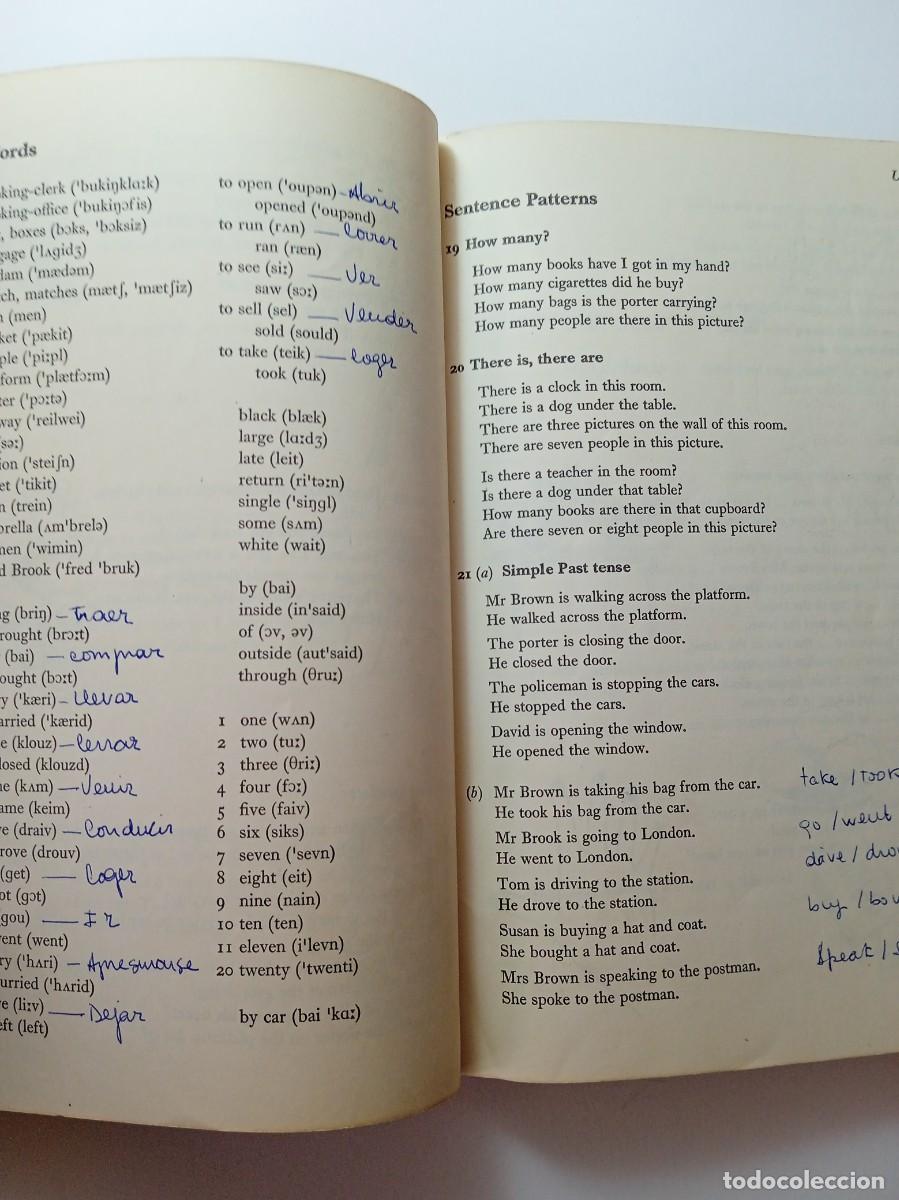 ords
king-clerk ('bukiŋklɑːk)
king-office ('bukiŋɔfis)
, boxes (bɔks, 'bɔksiz)
gage ('lʌgidʒ)
dam ('mædəm)
ch, matches (mætʃ, 'mætʃiz)
n (men)
ket ('pækit)
ple ('piːpl)
form ('plætfɔːm)
ter ('pɔːtə)
way ('reilwei)
(səː)
ion ('steiʃn)
et ('tikit)
n (trein)
brella (ʌm'brelə)
men ('wimin)
d Brook ('fred 'bruk)
ng (briŋ) – traer
rought (brɔːt)
(bai) – comprar
ought (bɔːt)
ry ('kæri) – llevar
arried ('kærid)
e (klouz) – cerrar
losed (klouzd)
ne (kʌm) – Venir
ame (keim)
ve (draiv) – Conducir
rove (drouv)
(get) — Coger
ot (gɔt)
(gou) — Ir
vent (went)
ry ('hʌri) –
urried ('hʌrid)
ve (liːv) — Dejar
eft (left)
to open ('oupən) – Abrir
opened ('oupənd)
to run (rʌn) — Correr
ran (ræn)
to see (siː) — Ver
saw (sɔː)
to sell (sel) — Vender
sold (sould)
to take (teik) — coger
took (tuk)
black (blæk)
large (lɑːdʒ)
late (leit)
return (ri'təːn)
single ('siŋgl)
some (sʌm)
white (wait)
by (bai)
inside (in'said)
of (ɔv, əv)
outside (aut'said)
through (θruː)
1 one (wʌn)
2 two (tuː)
3 three (θriː)
4 four (fɔː)
5 five (faiv)
6 six (siks)
7 seven ('sevn)
8 eight (eit)
9 nine (nain)
10 ten (ten)
11 eleven (i'levn)
20 twenty ('twenti)
by car (bai 'kɑː)
Sentence Patterns
19 How many?
How many books have I got in my hand?
How many cigarettes did he buy?
How many bags is the porter carrying?
How many people are there in this picture?
20 There is, there are
There is a clock in this room.
There is a dog under the table.
There are three pictures on the wall of this room.
There are seven people in this picture.
Is there a teacher in the room?
Is there a dog under that table?
How many books are there in that cupboard?
Are there seven or eight people in this picture?
21 (a) Simple Past tense
Mr Brown is walking across the platform.
He walked across the platform.
The porter is closing the door.
He closed the door.
The policeman is stopping the cars.
He stopped the cars.
David is opening the window.
He opened the window.
(b) Mr Brown is taking his bag from the car. take / took
He took his bag from the car.
Mr Brook is going to London. go / went
He went to London.
Tom is driving to the station. / dro
He drove to the station.
Susan is buying a hat and coat. buy / bou
She bought a hat and coat.
Mrs Brown is speaking to the postman. Speak / s
She spoke to the postman.
todocoleccion